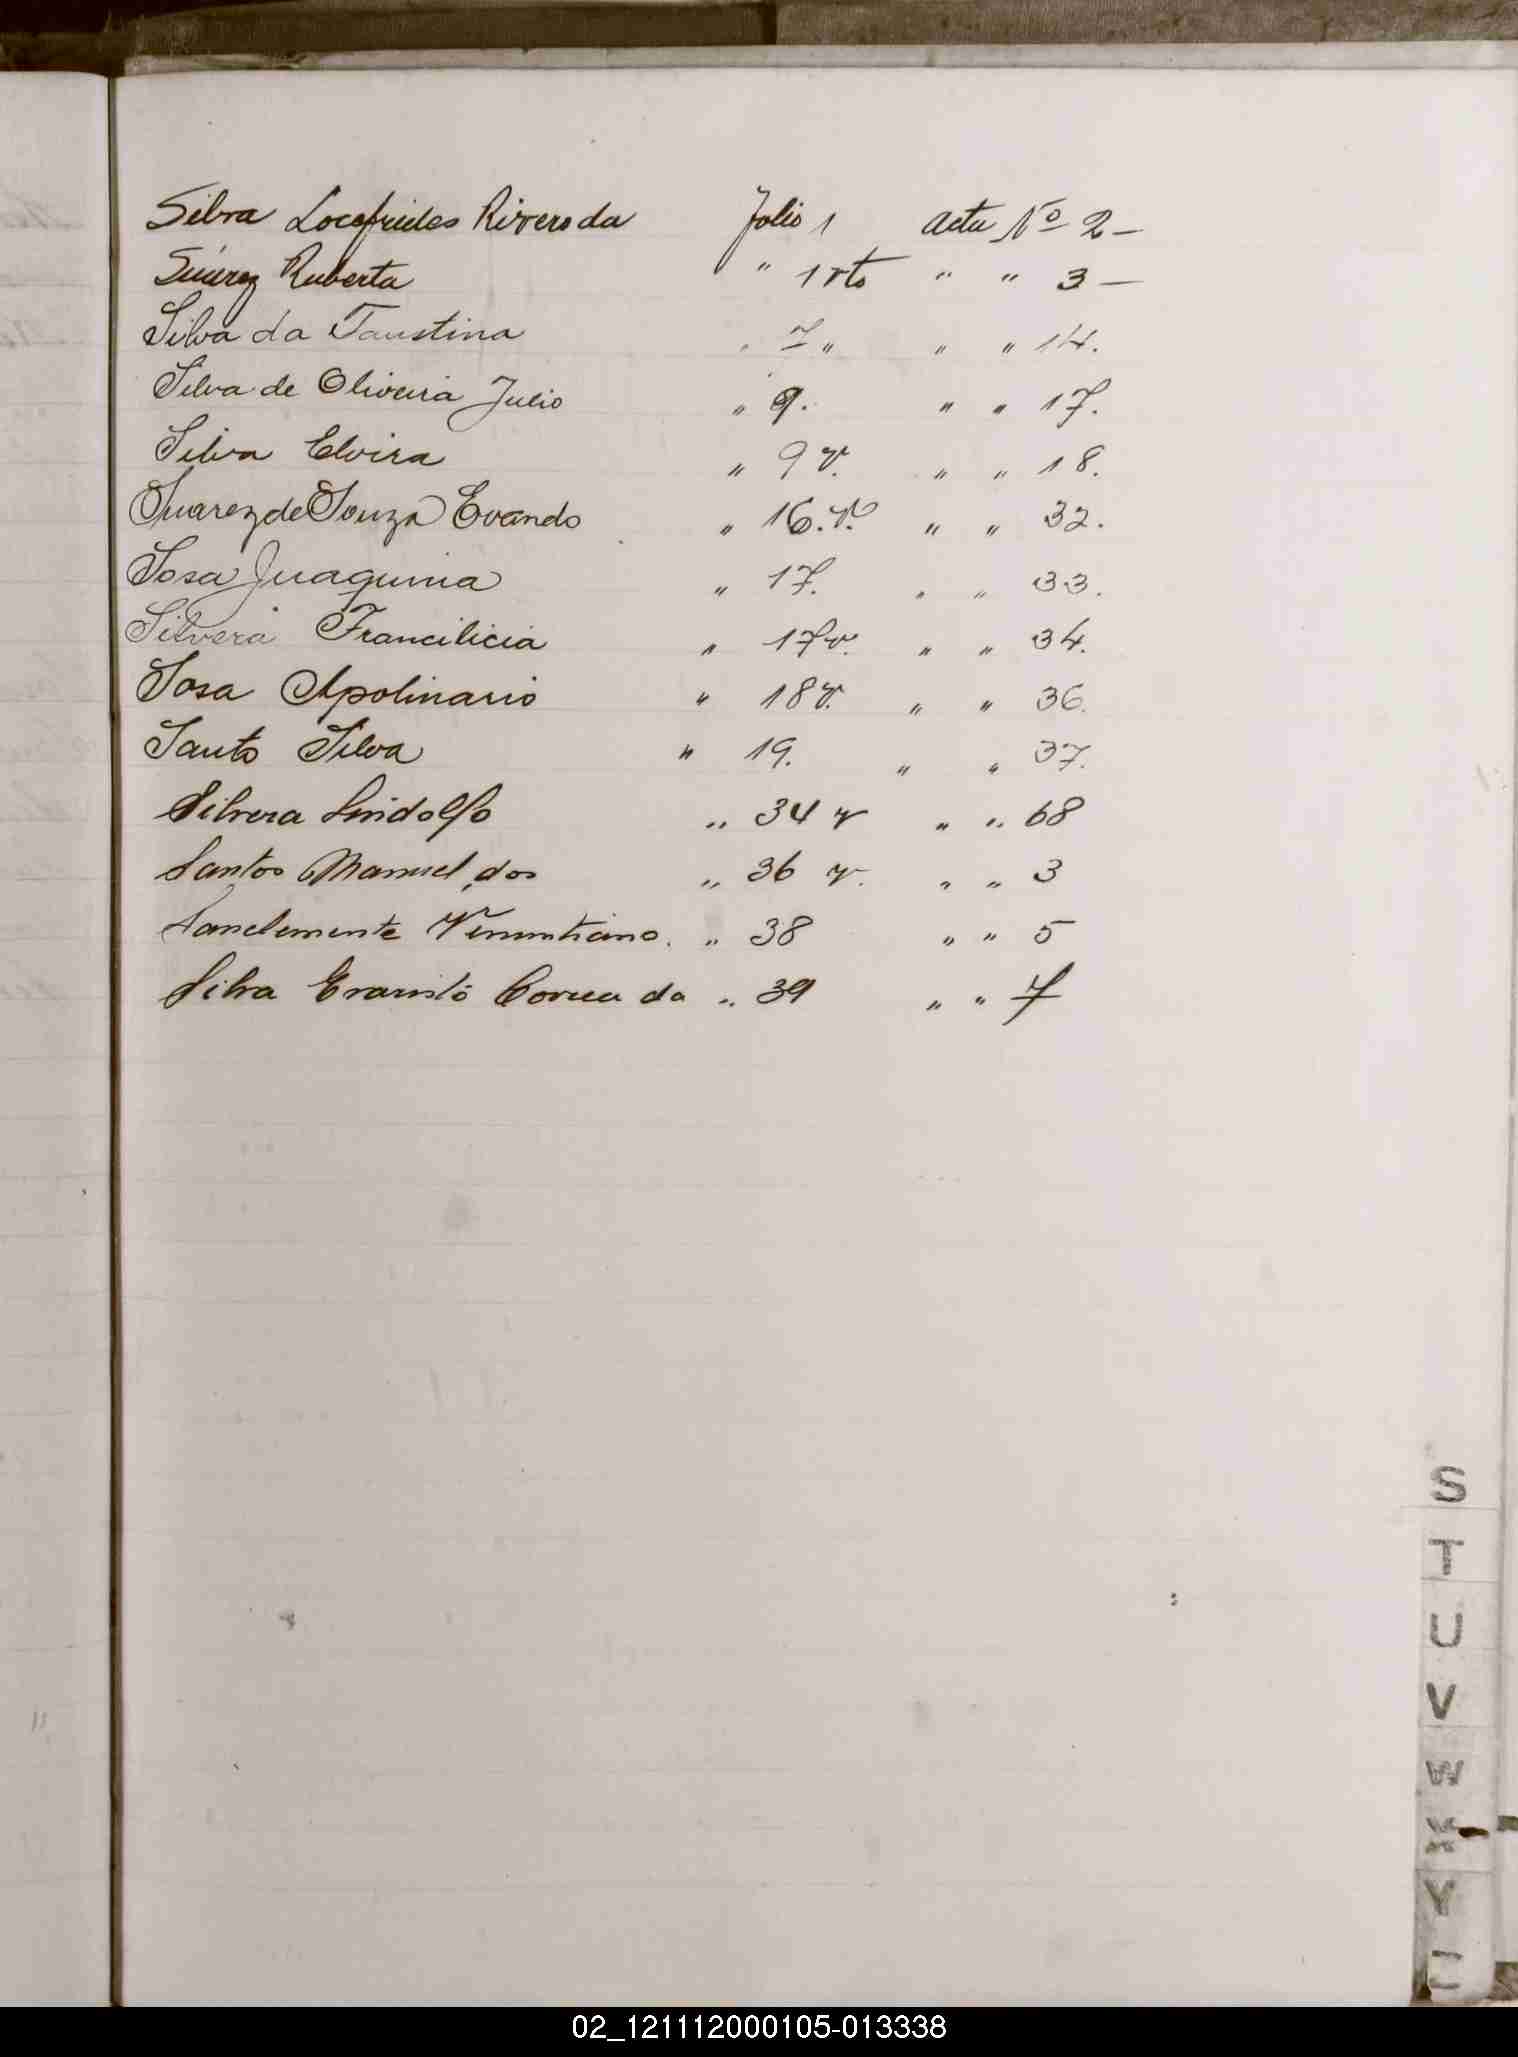 Silva Locofrides Rivero da Folio 1 Acta Nº 2 —
Súarez Ruberta " 1 vto " " 3 —
Silva da Faustina " 7 " " " 14.
Silva de Oliveira Julio " 9. " " 17.
Silva Elvira " 9 v. " " 18.
Suarez de Souza Evando " 16. v. " " 32.
Sosa Juaquina " 17. " " 33.
Silvera Francilicia " 17 v. " " 34.
Sosa Apolinario " 18 v. " " 36.
Santo Silva " 19. " " 37.
Silvera Lindolfo " 34 v " " 68
Santos Manuel, dos " 36 v. " " 3
Sanclemente " 38 " " 5
Silva Evaristo Correa da " 39 " " 7
S
T
U
V
W
X
Y
Z
02_121112000105-013338